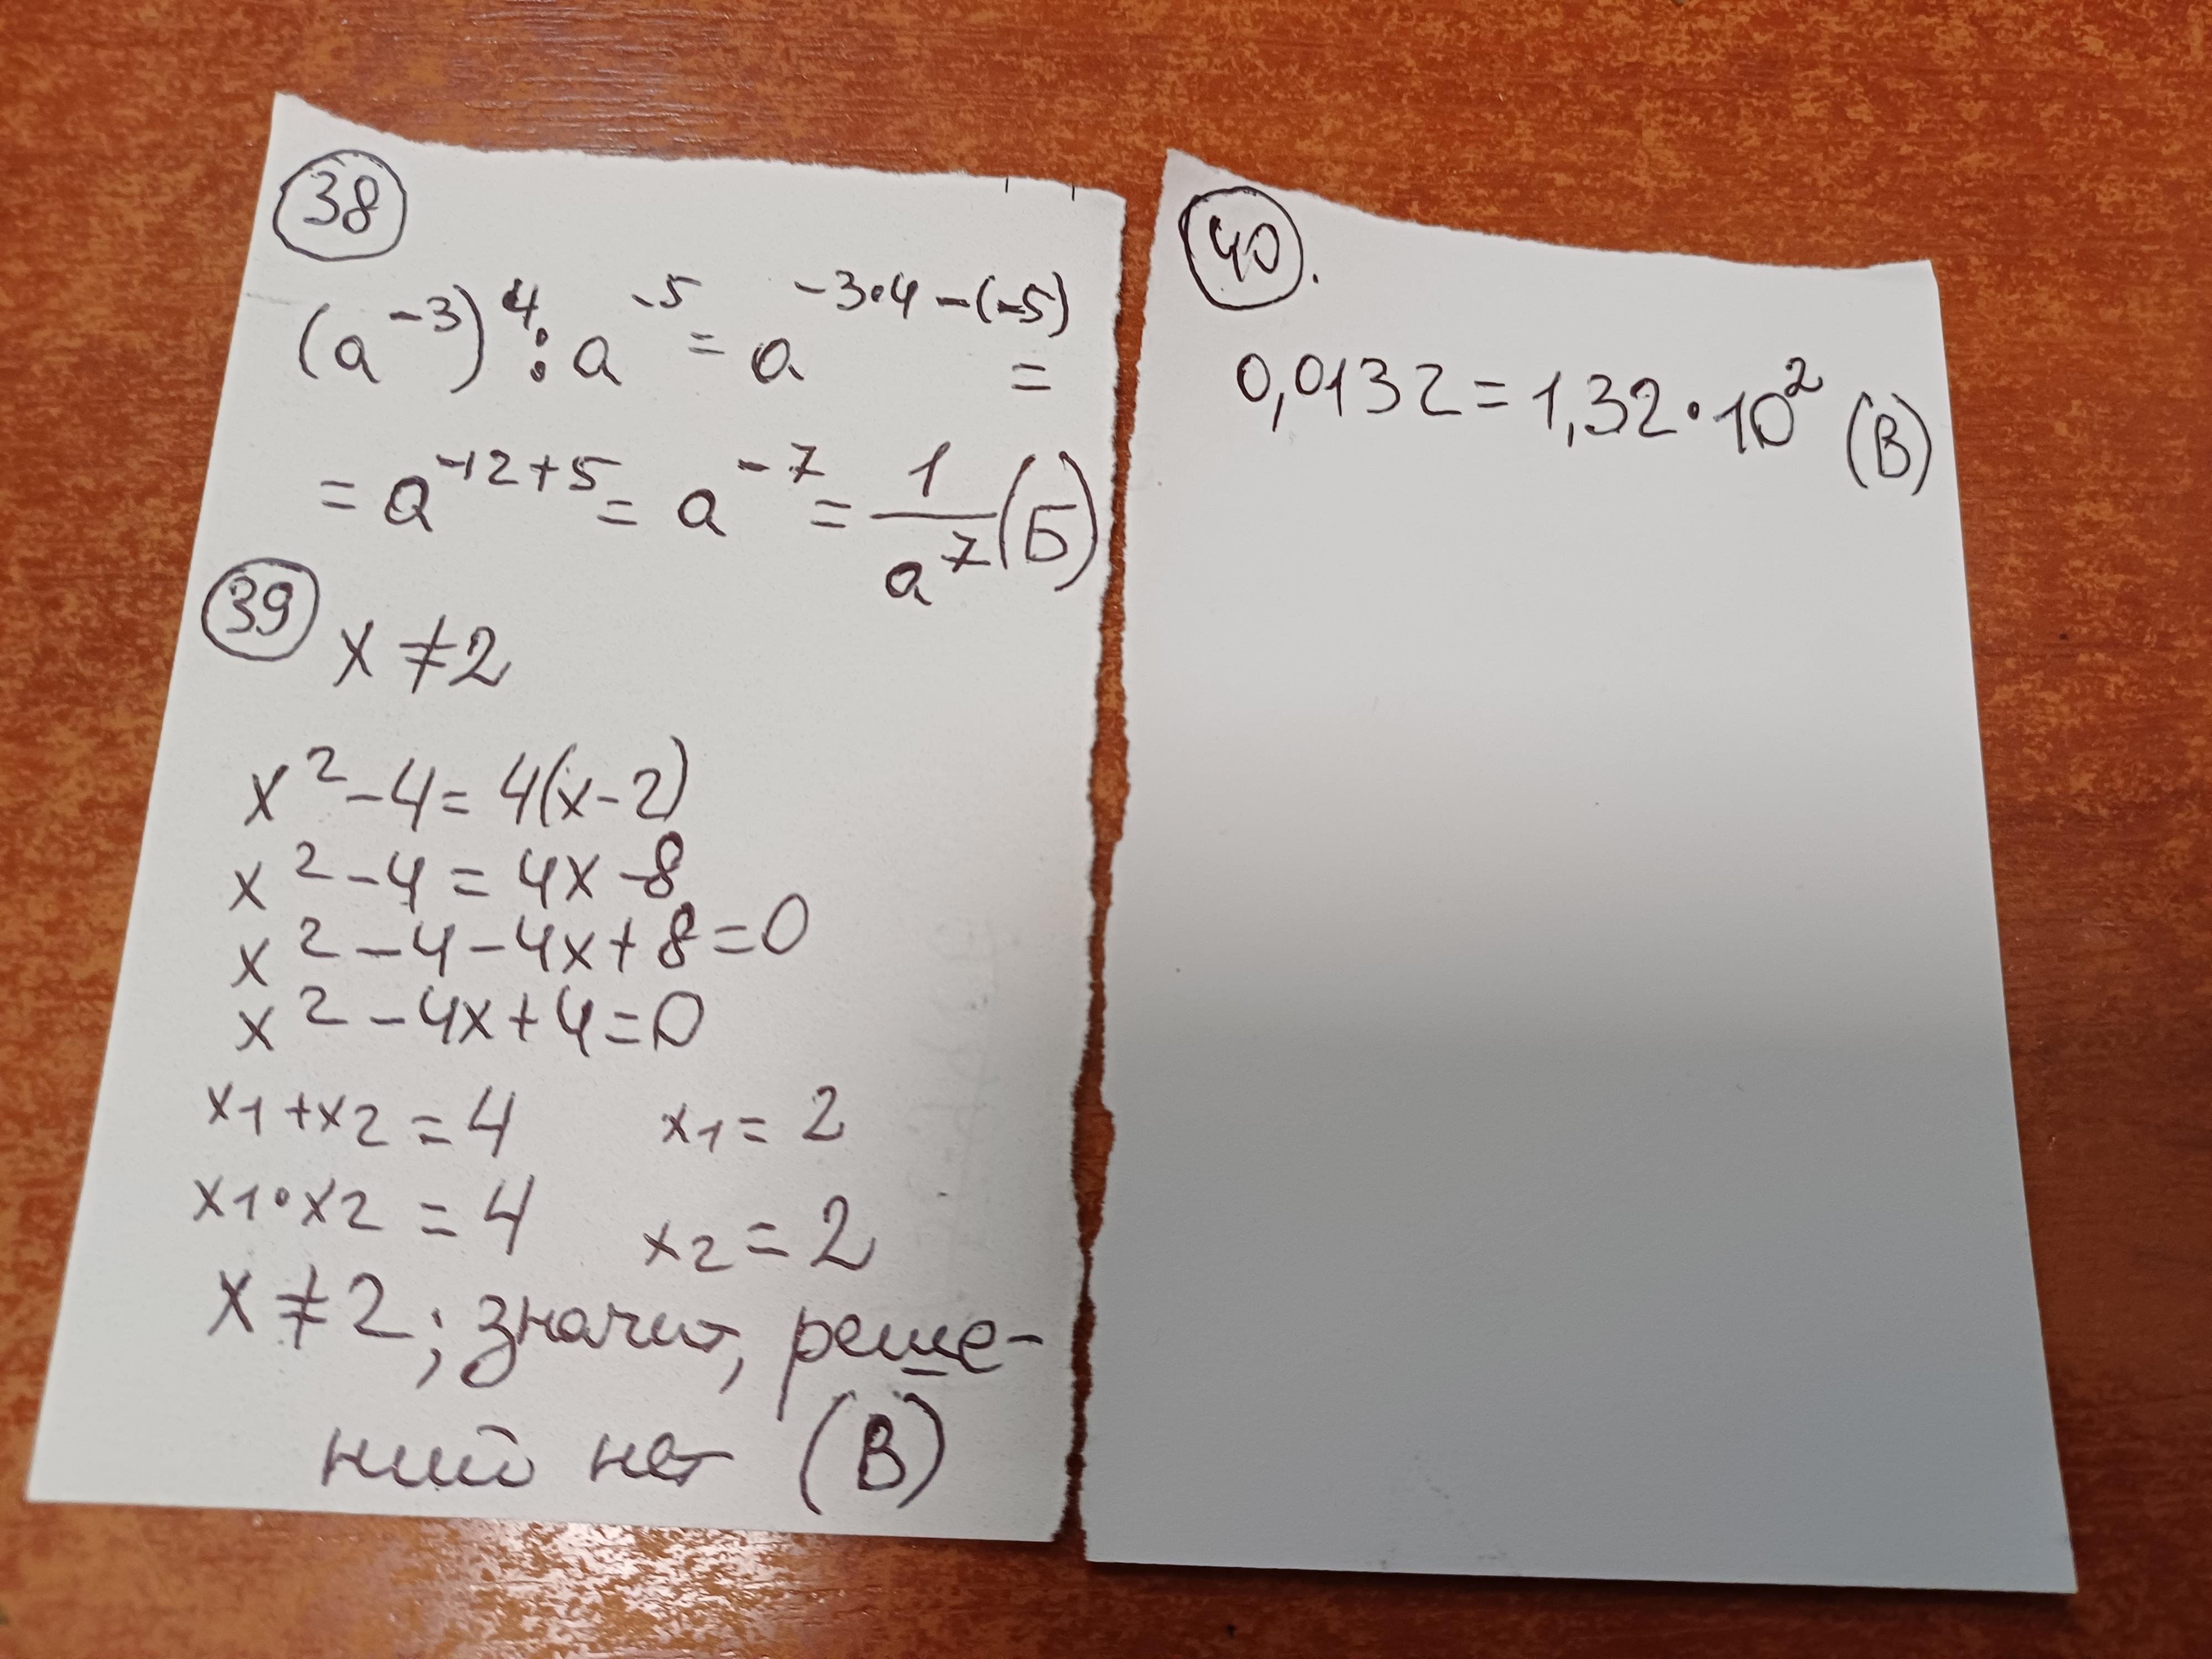 38
(a⁻³)⁴ : a⁻⁵ = a⁻³·⁴⁻⁽⁻⁵⁾ =
= a⁻¹²⁺⁵ = a⁻⁷ = 1/a⁷ (Б)
39 x ≠ 2
x² - 4 = 4(x - 2)
x² - 4 = 4x - 8
x² - 4 - 4x + 8 = 0
x² - 4x + 4 = 0
x1 + x2 = 4 x1 = 2
x1 · x2 = 4 x2 = 2
x ≠ 2; значит, реше-
ний нет (В)
40.
0,0132 = 1,32 · 10² (В)